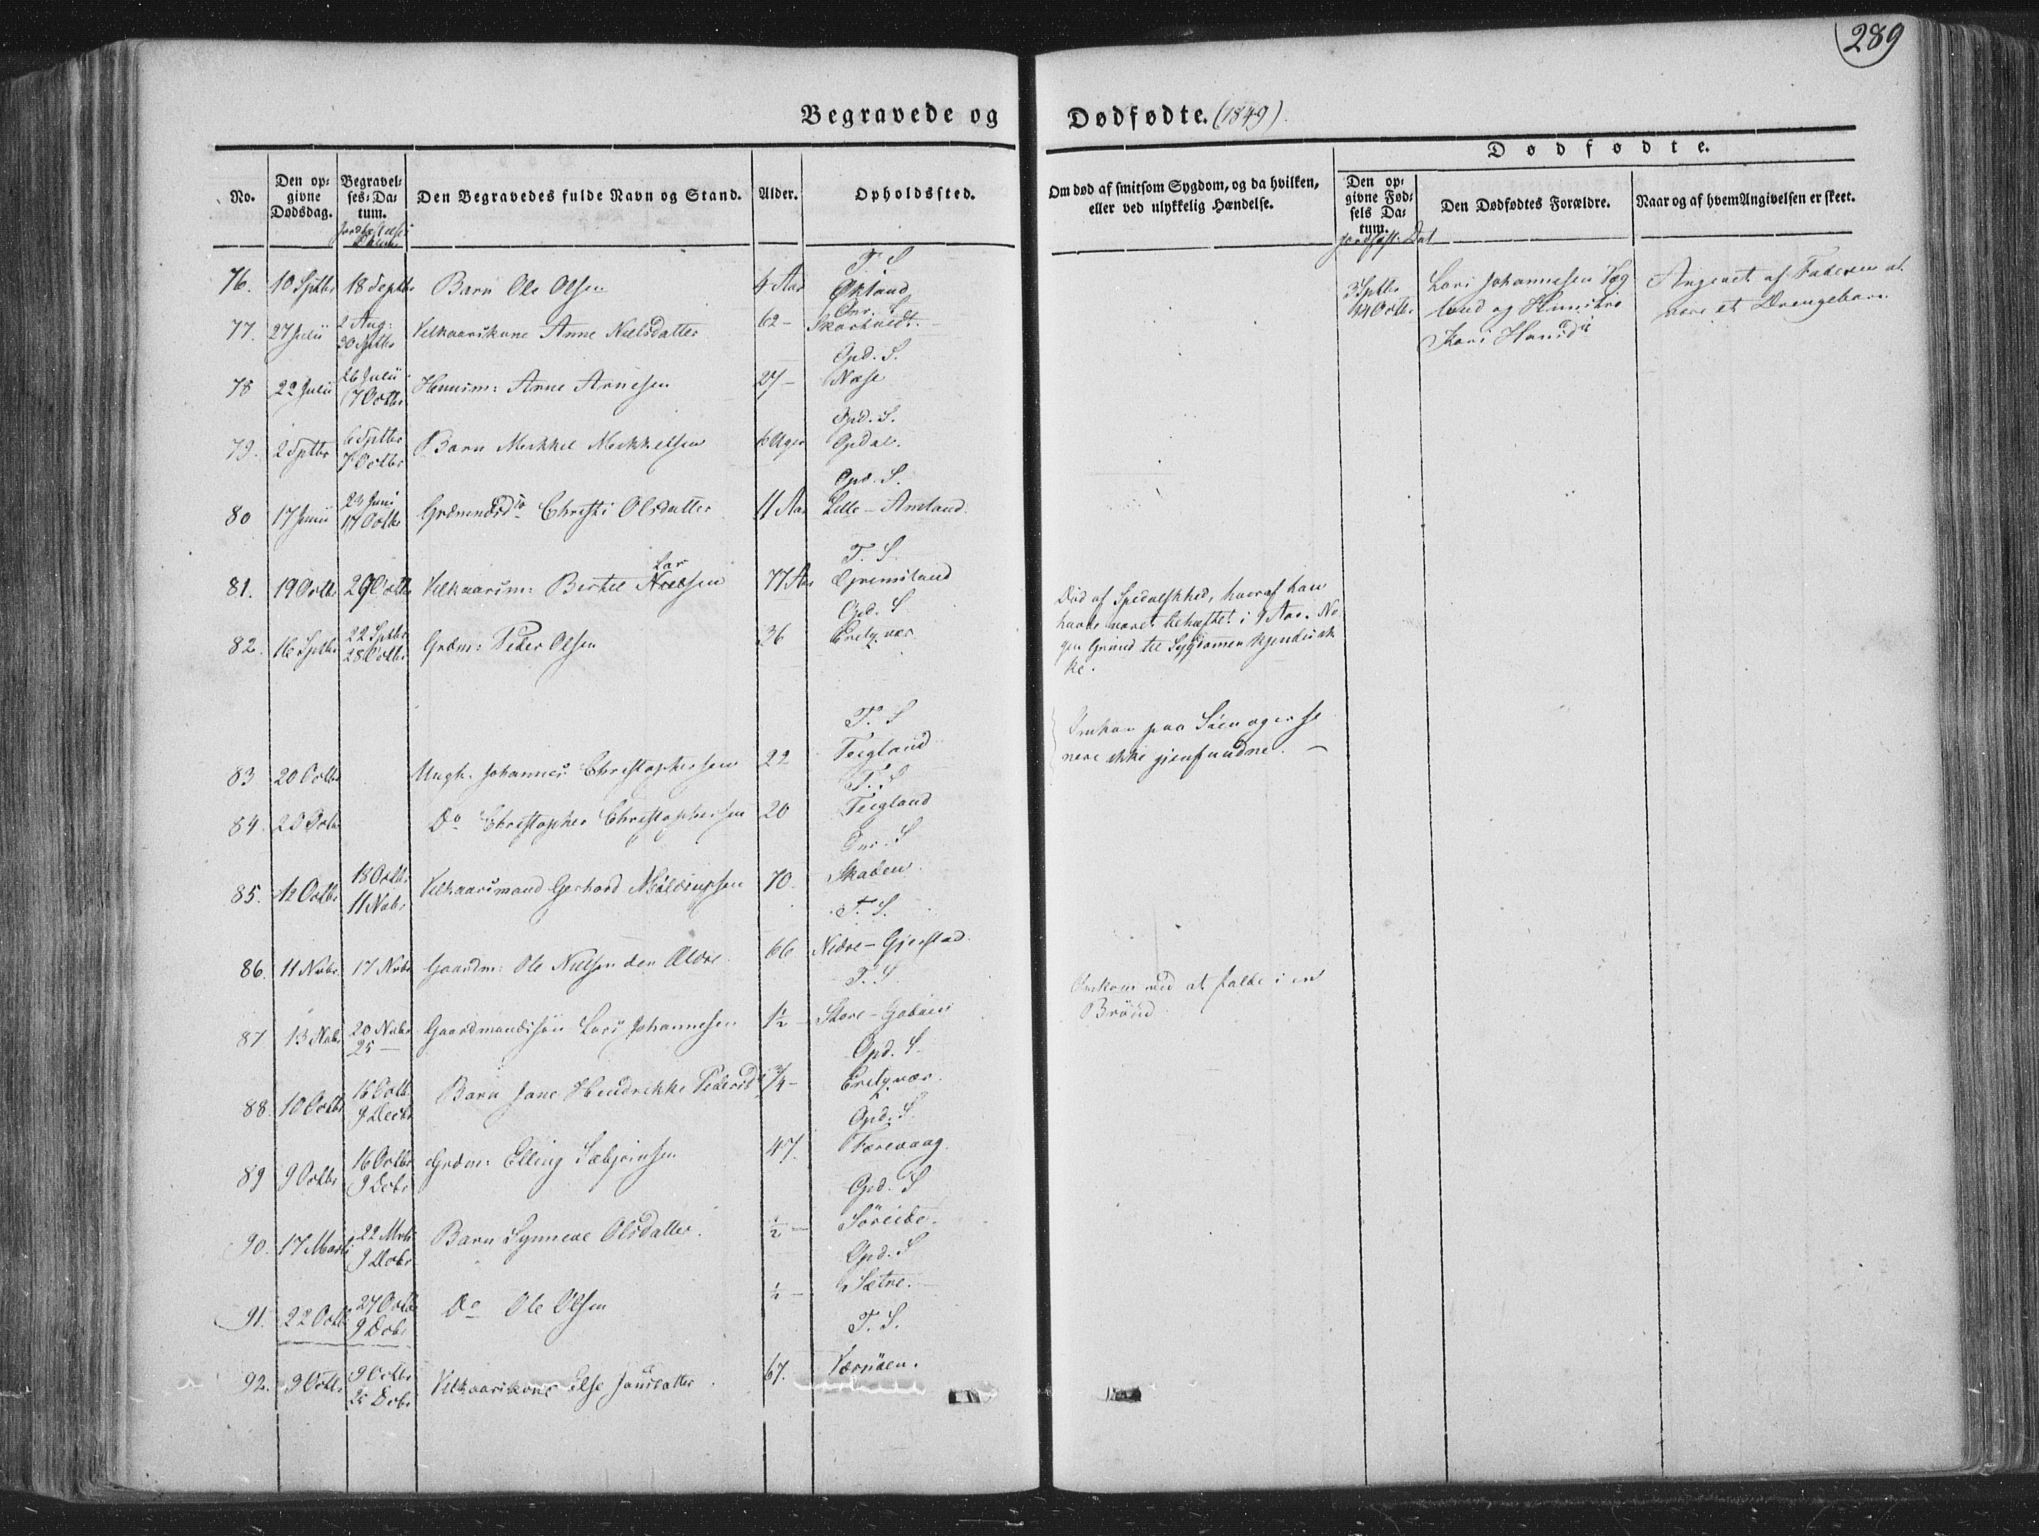 289
Begravede og Dødfødte. (1849)
Dødfødte.
No.
Den opgivne Dødsdag.
Begravelses-Datum.
Den Begravedes fulde Navn og Stand.
Alder.
Opholdssted.
Om død af smitsom Sygdom, og da hvilken, eller ved ulykkelig Hændelse.
Den opgivne Fødsels Datum.
Den Dødfødtes Forældre.
Naar og af hvem Angivelsen er skeet.
T. S
76. 10 Sptbr 18 Septbr Barn Ole Olsen 4 Aar Økland
77. 27 Julii 2 Aug: 30 Sptbr Velkaarskone Anne Nielsdatter 62 – Skartvedt.
Opd. S.
78 22 Julii 26 Julii 7 Octbr Huusm: Arne Arnesen 27 – Næse
Opd. S.
79. 2 Sptbr 6 Sptbr 7 Octbr Barn Mekkel Mekkelsen 6 Uger Opdal.
Opd. S.
80 17 Junii 23 Juni 17 Octbr Christi Olsdatter 11 Aar Lille – Amland.
T. S.
Lar
81. 19 Octbr 29 Octbr Velkaarsm: Bertel Nielsen 77 Aar Grimsland
Opd. S
82. 16 Sptbr 22 Sptbr 28 Octbr Grdm: Peder Olsen 36
T. S
83 20 Octbr Ungk. Johannes Christophersen 22 Teigland
T. S
84. 20 Octbr Do Christopher Christophersen 20 Teigland
85. 12 Octbr 18 Octbr 11 Nvbr Velkaarsmand Gerhard 70. Skaden
T. S.
86. 11 Nvbr. 17 Nvbr Gaardm: Ole Nielsen den Ældre. 66 Nedre – Gjerstad.
T. S.
87 13 Nvbr 20 Nvbr 25 – Gaardmandssøn Lars Johannesen 1½ – Store –
Opd. S.
88. 10 Octbr 16 Octb. 9 Decbr Barn Jane Hendrikke Pedersd. ¾ –
Opd. S.
89 9 Octbr 16 Octbr 9 Decbr Grdm: Elling Sæbjørnsen 47. Færevaag.
Opd. S
90. 17 Marts 22 Mrts 9 Decbr Barn Synneve Olsdatter. ½ – Søreide.
Opd. S
91. 22 Octb 27 Octb 9 Decbr Do Ole Olsen ½ – Sætre.
T. S.
92. 9 Octbr 9 Octbr 26 Decbr Velkaarskone Else Jansdatter 67. Værøen.
Død af Spedalskhed, hvoraf han
havde været behæftet i 9 Aar. No
gen Grund til Sygdommen kjendes ik
ke.
Omkom paa Søen og ere se
nere ikke gjenfundne. –
Omkom ved at falde i en
Brønd.
3 Sptbr
14 Octbr
Lars Johannesen
land og Hustrue
Kari Hansd.
Angivet af Faderen at
være et Drengebarn.